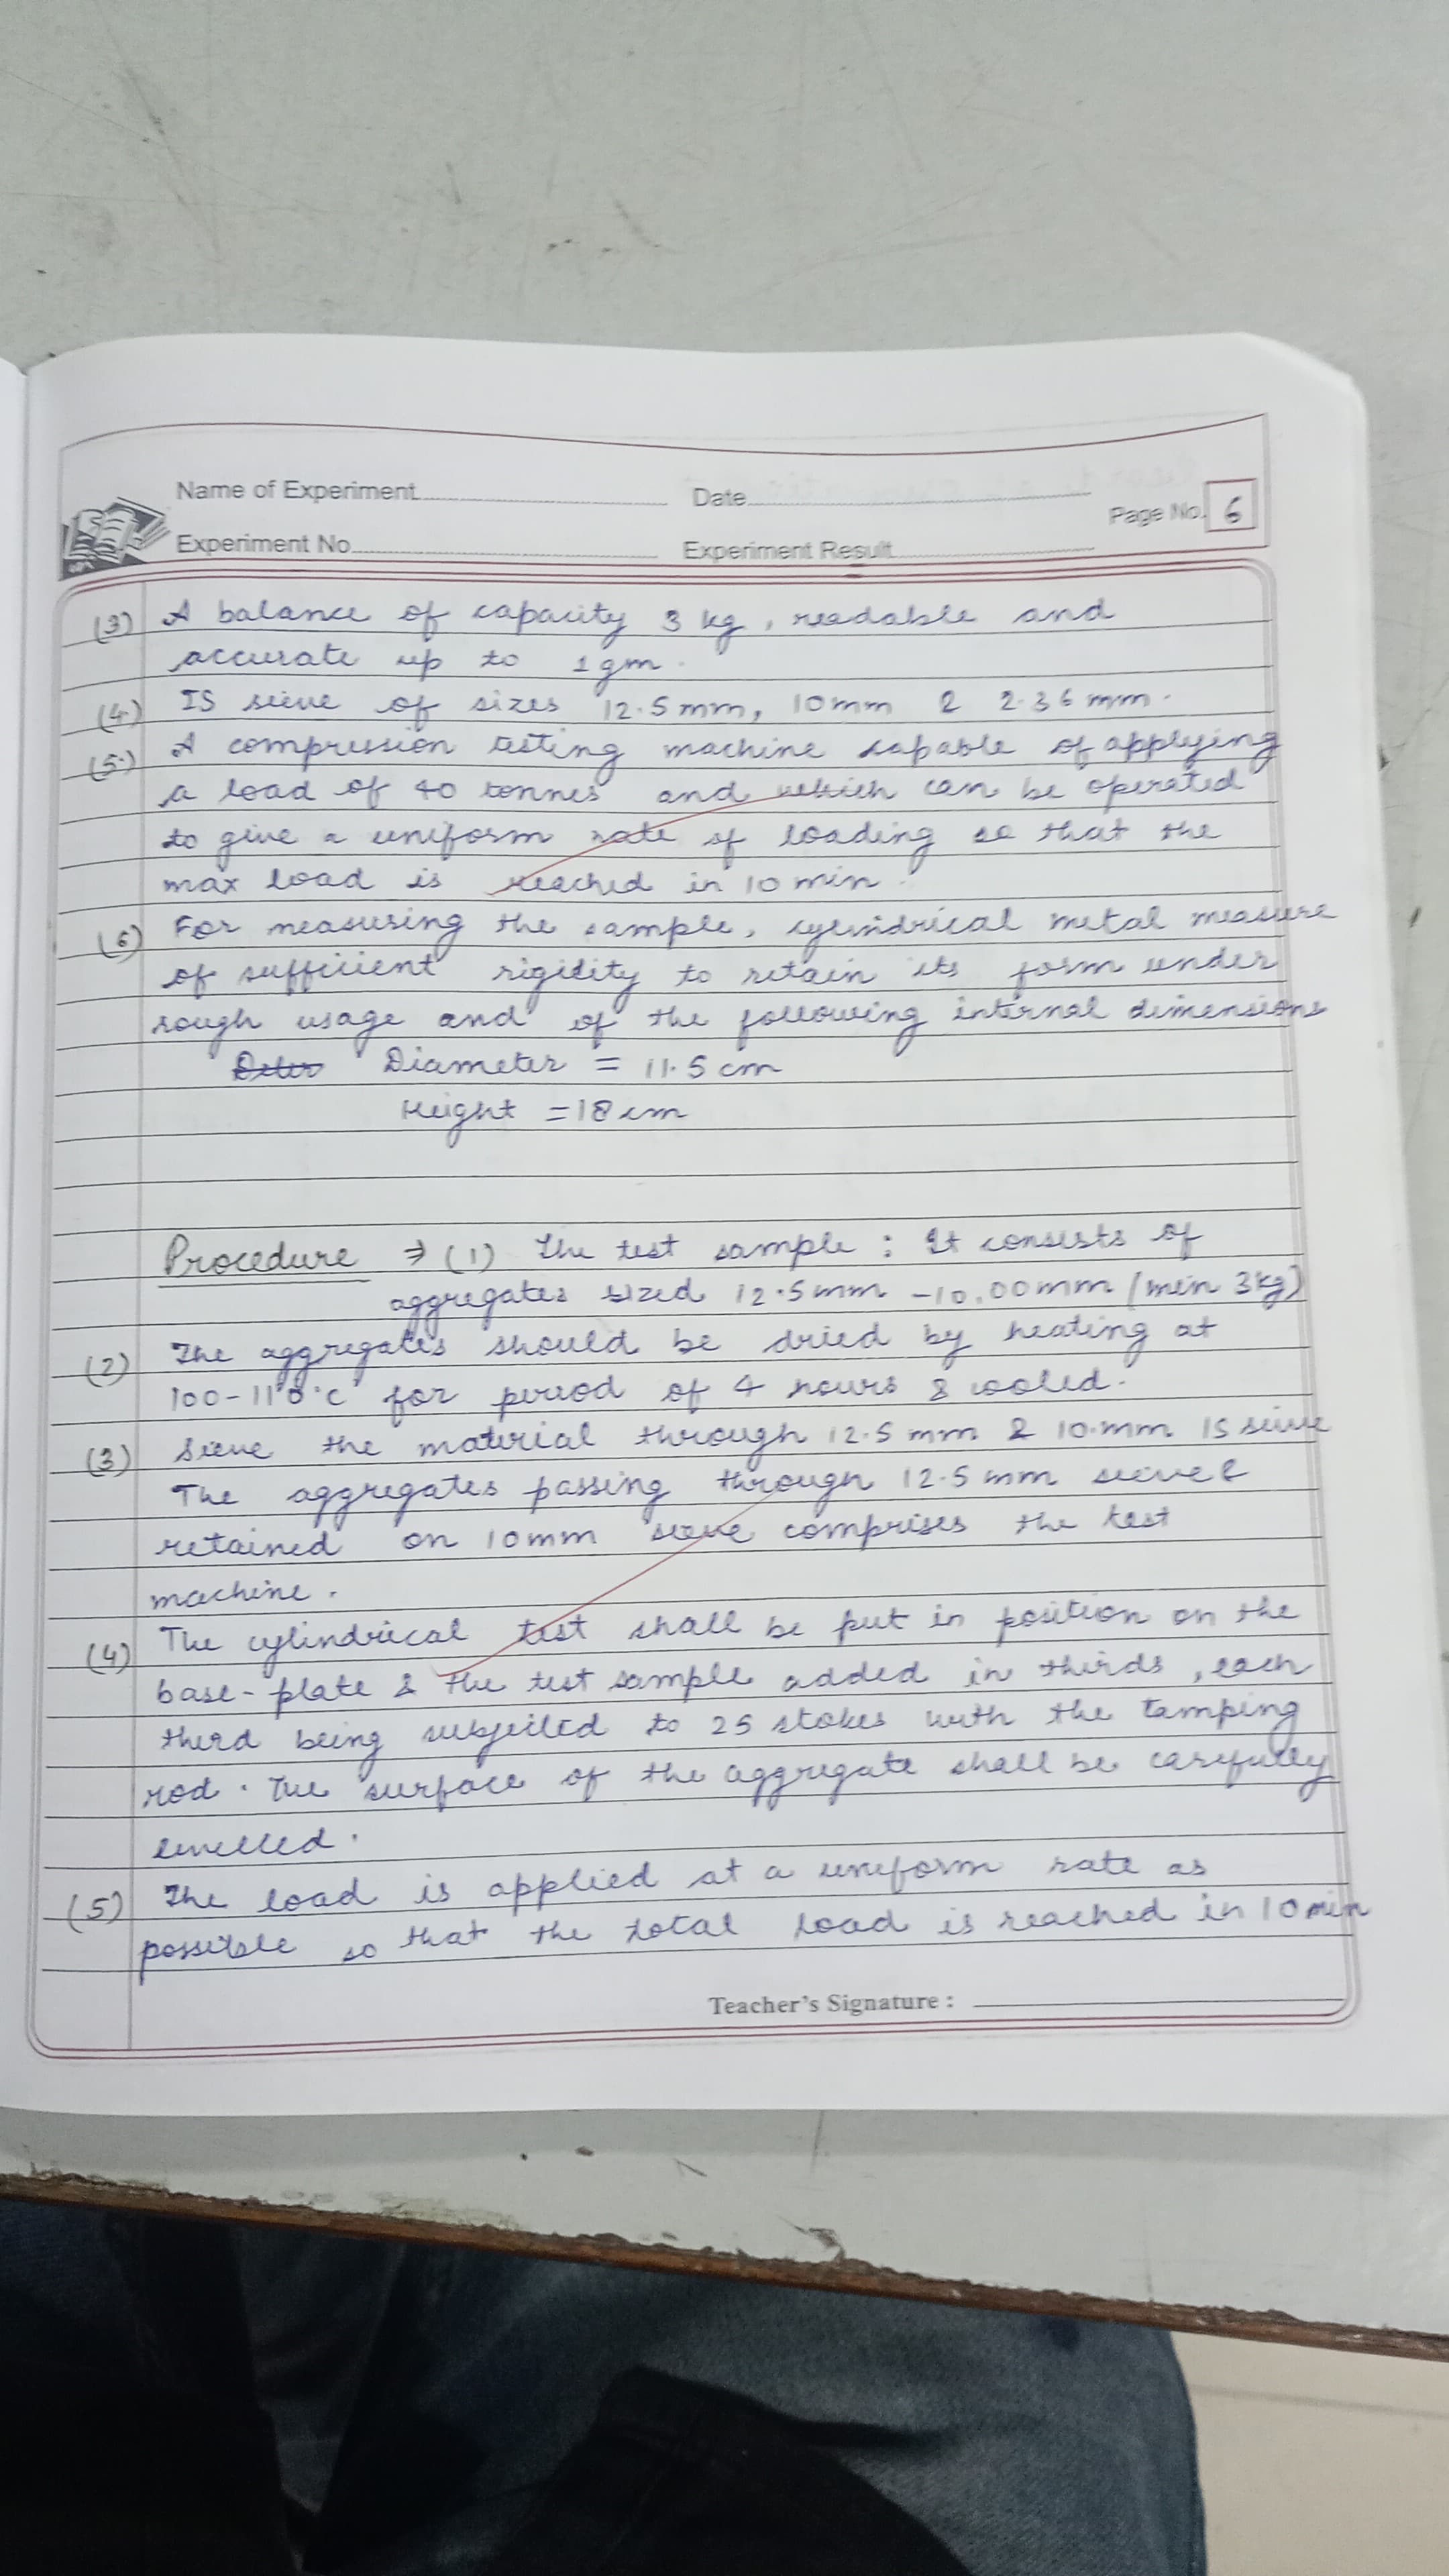 Name of Experiment
Date
Page No. 6
Experiment No
Experiment Result
(3) A balance of capacity 3 kg, readable and
accurate up to 1 gm.
(4.) IS sieve of sizes 12.5 mm, 10 mm & 2.36 mm.
(5.) A compression testing machine capable of applying
a load of 40 tonnes and which can be operated
to give a uniform rate of loading so that the
max load is reached in 10 min.
(6) For measuring the sample, cylindrical metal measure
of sufficient rigidity to retain its form under
rough usage and of the following internal dimensions
Diameter = 11.5 cm
Height = 18 cm
Procedure ⇒ (1) The test sample : It consists of
aggregates sized 12.5 mm - 10.00 mm (min 3 kg)
(2) The aggregates should be dried by heating at
100-110°C for period of 4 hours & cooled.
(3) Sieve the material through 12.5 mm & 10.mm IS sieve
The aggregates passing through 12.5 mm sieve &
retained on 10 mm sieve comprises the test
machine.
(4) The cylindrical test shall be put in position on the
base-plate & the test sample added in thirds, each
third being subjected to 25 stokes with the tamping
rod. The surface of the aggregate shall be carefully
levelled.
(5) The load is applied at a uniform rate as
possible so that the total load is reached in 10 min
Teacher's Signature :